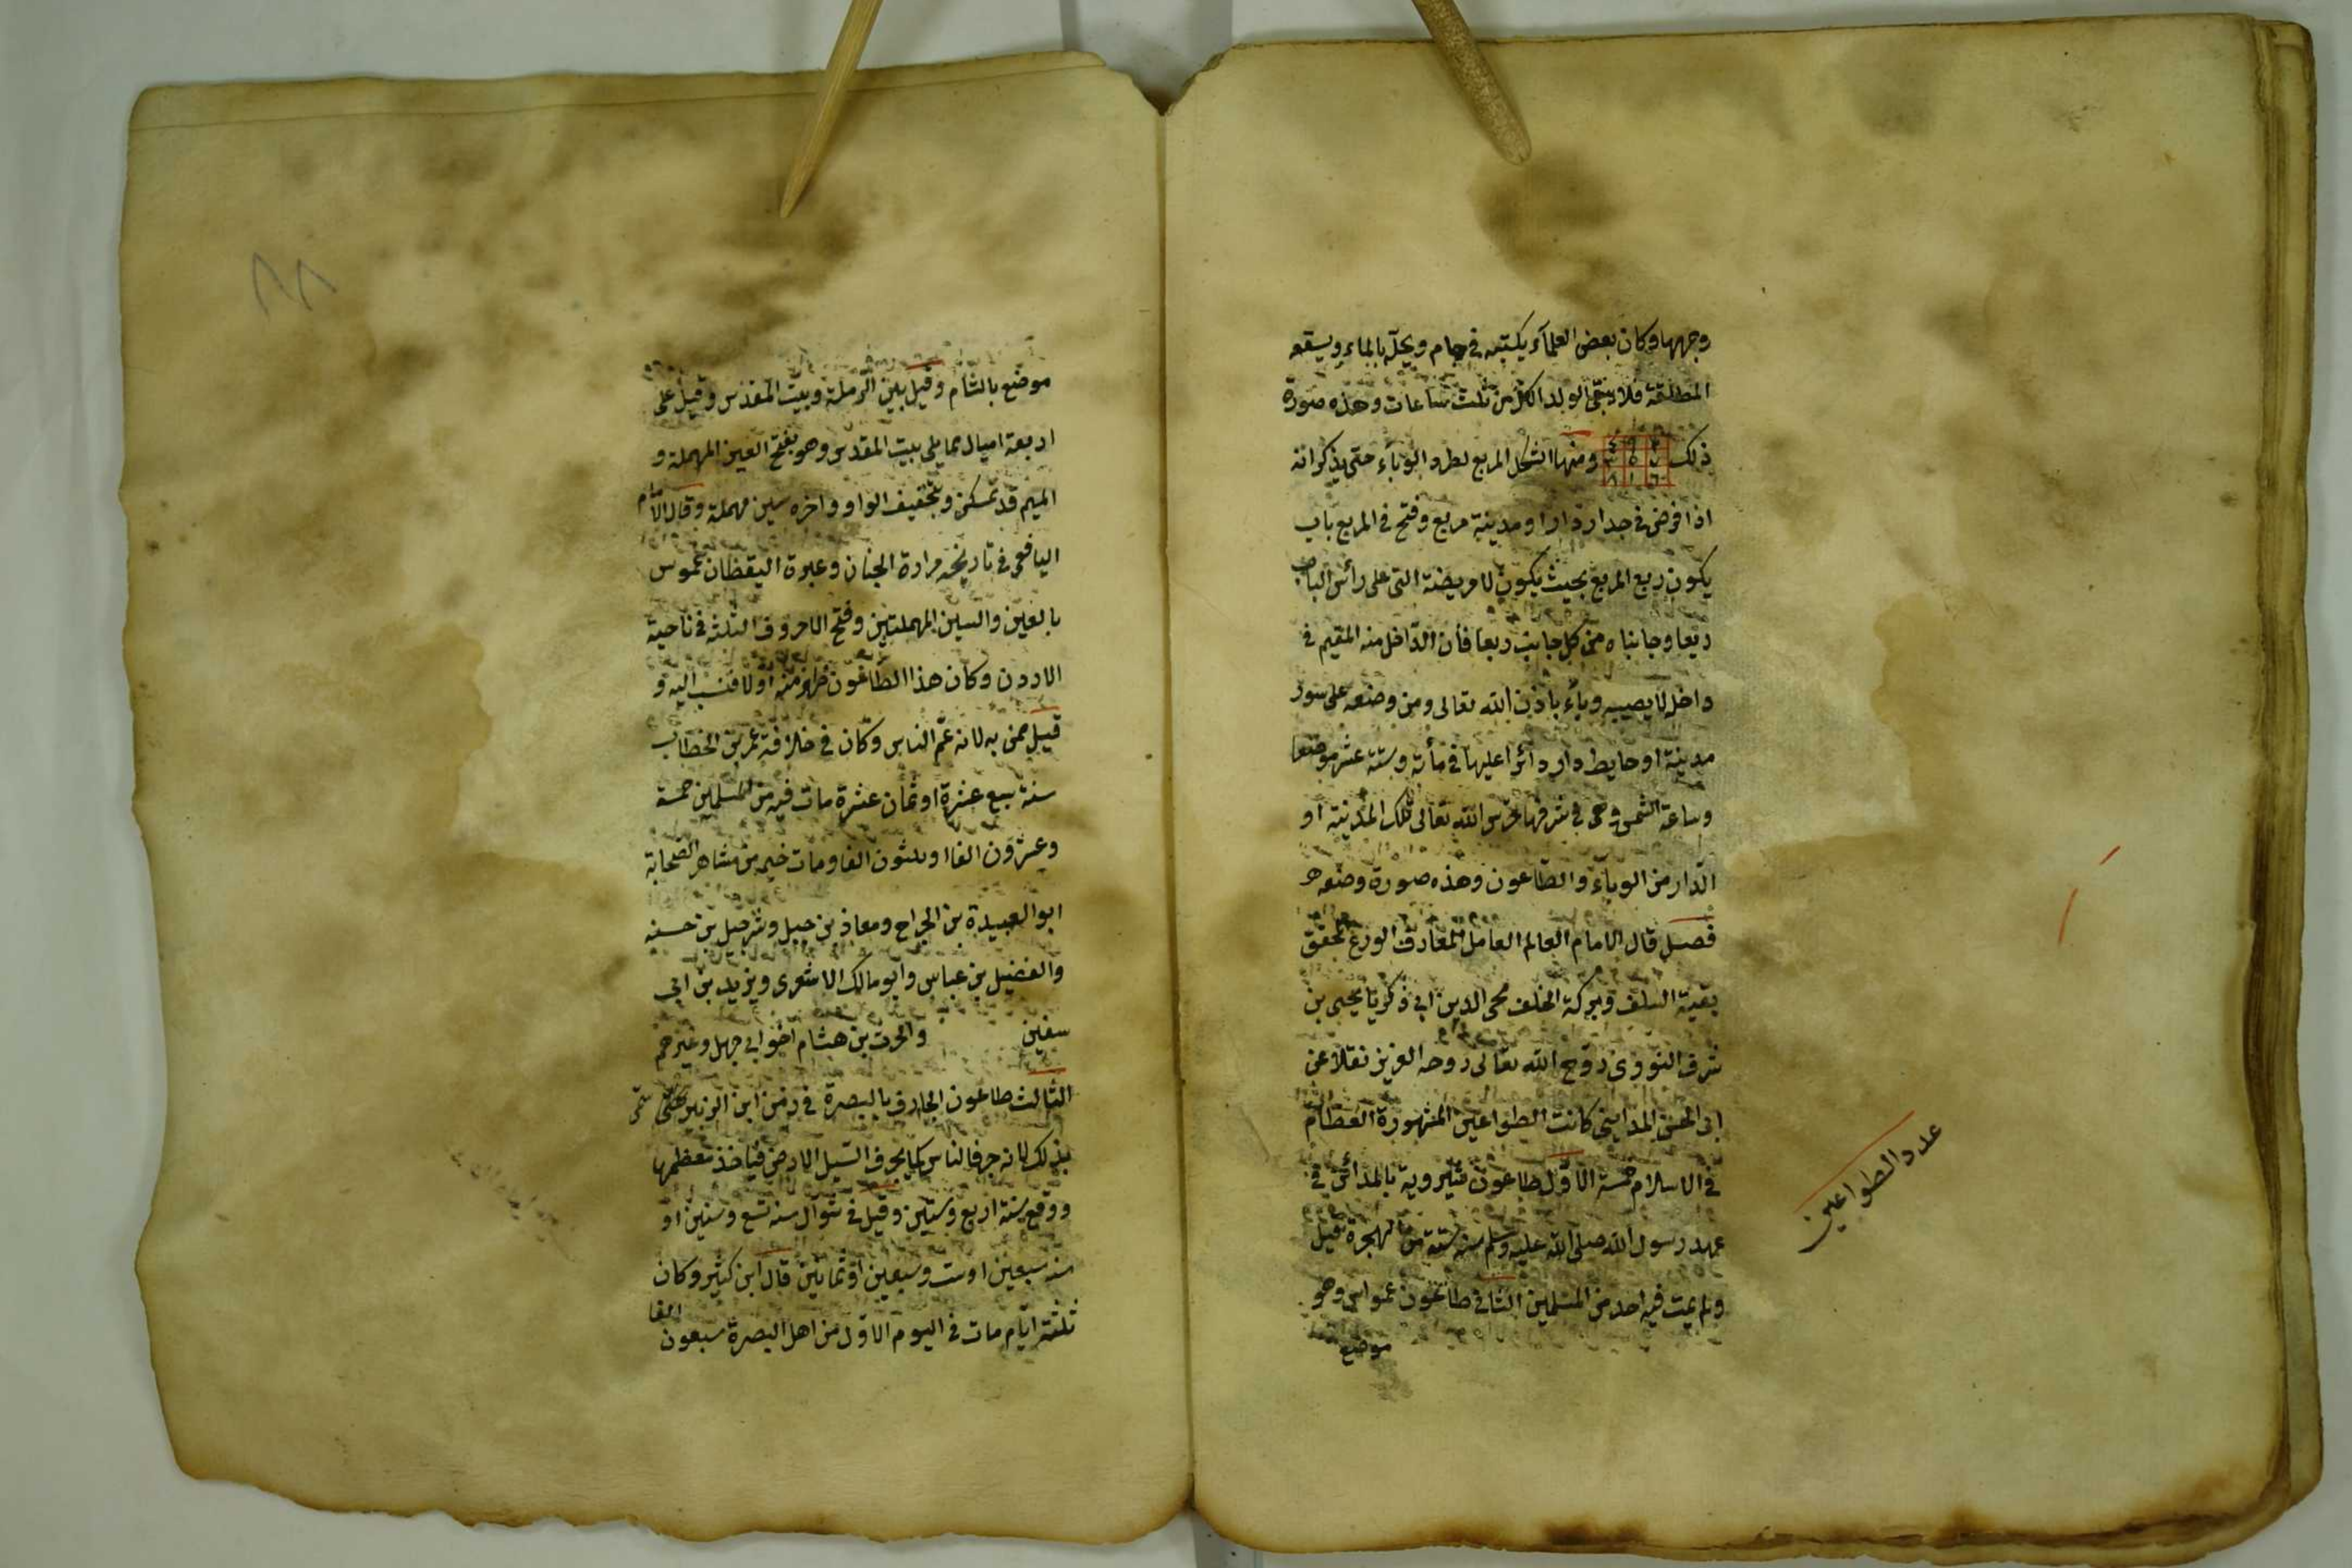 وجهها وكان بعض العلمآء يكتبه في جام ويحلّه بالماء ويسقه
المطلقة فلا يبقى الولد اكثر من ثلث ساعات وهذه صورة
ذلك ومنها الشكل المربع لطرد الوبآء حتى يذكر انه
٤ ٩ ٢
٣ ٥ ٧
٨ ١ ٦
اذا فرض في جدار دار او مدينة مربع وفتح في المربع باب
يكون ربع المربع بحيث يكون لا مريضة التى على رأس الباب
ربعا وجانباه من كل جانب ربعا فأن الدّاخل منه المقيم في
داخل لا يصيبه وبآء باذن الله تعالى ومن وضعه على سور
مدينة او حايط دار دائرا عليها في مأته وستة عشر موضعا
وساعة الشمس وهى في شرفها حرس الله تعالى تلك المدينة او
الدّار من الوبآء والطّاعون وهذه صورة وضعه
فصل قال الامام العالم العامل العارف الورع المحقق
بقية السلف وبركة الخلف محى الدين ابى ذكريا يحيى بن
شرف النووى روّح الله تعالى روحه العزيز نقلا عن
ابى الحسن المداينى كانت الطواعين المشهورة العظام
في الاسلام خمسة الاوّل طاعون شيرويه بالمدائن في
عهد رسول الله صلى الله عليه وسلم سنه ستة من الهجرة قيل
ولم يمت فيه احد من المسلمين الثانى طاعون عمواس وهو
موضع
عدد الطواعين
موضع بالشام وقيل بين الرملة وبيت المقدس وقيل على
اربعة اميال مما يلى بيت المقدس وهو بفتح العين المهملة و
الميم قد تسكن وبتخفيف الواو واخره سين مهملة وقال الامام
اليافعى في تاريخه مرادة الجنان وعبرة اليقظان عموس
بالعين والسين المهملتين وفتح الاحروف الثلثة في ناحية
الاردن وكان هذا الطاعون ظهر منه اوّلا فنسب اليه و
قيل سمى به لانه عمّ الناس وكان في خلافة عمر بن الخطاب
سنة سبع عشرة او ثمان عشرة مات فيه من المسلمين خمسة
وعشرون الفا او ثلثون الفا ومات فيه من مشاهر الصحابة
ابوا لعبيدة بن الجراح ومعاذ بن جبل وشرحبيل بن حسنه
والفضيل بن عباس وابو مالك الاشعرى ويزيد بن ابى
سفين والحرث بن هشام اخو ابى جهل وغيرهم
الثالث طاعون الجارف بالبصرة في زمن ابن الزبير سمى
بذلك لانه جرف الناس كما يحرف السّيل الارض فيأخذ معظمها
ووقع سنة اربع وستين وقيل في شوال سنه تسع وستين او
سنه سبعين او ست وسبعين او ثمانين قال ابن كثير وكان
ثلثة ايّام مات في اليوم الاوّل من اهل البصرة سبعون الفا